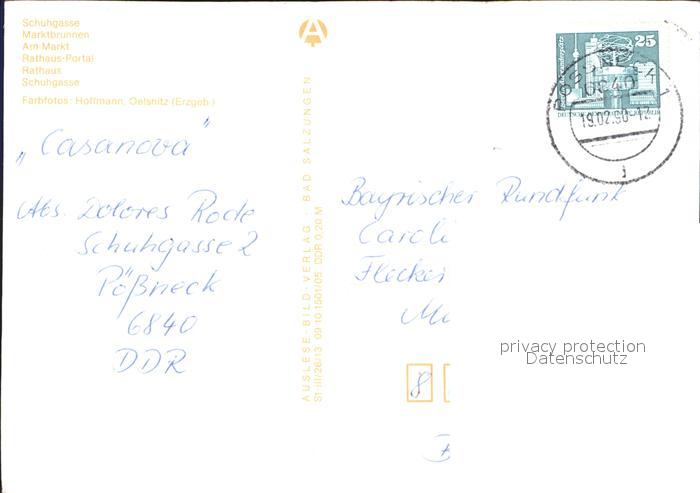 Schuhgasse
Marktbrunnen
Am Markt
Rathaus-Portal
Rathaus
Schuhgasse
Farbfotos: Hoffmann, Oelsnitz (Erzgeb.)
„Casanova"
Abs. Dolores Rode
Schuhgasse 2
Pößneck
6840
DDR
AUSLESE-BILD-VERLAG · BAD SALZUNGEN
St-III/26/13 09 10 1501/05 DDR 0,20 M
25
PÖSSNECK 1
6840
19.02.90-12
j
Bayrischer Rundfunk
Caroli
Flecken
Mü
8
privacy protection
Datenschutz